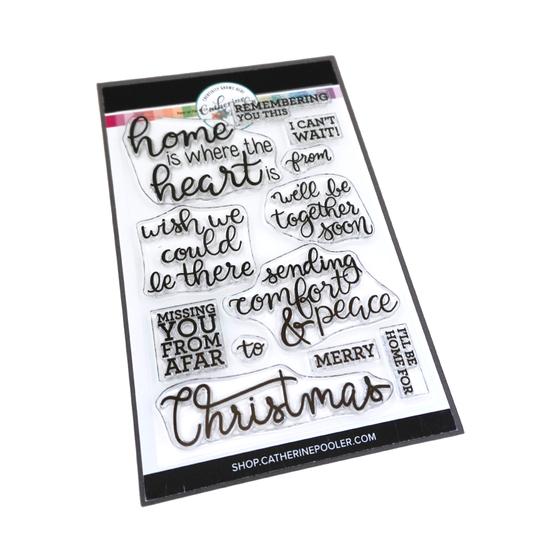 Catherine
REMEMBERING
YOU THIS
home
is where the
heart is
I CAN'T
WAIT!
from
we'll be
together
soon
wish we
could
be there
sending
comfort
& peace
MISSING
YOU
FROM
AFAR
to
MERRY
I'LL BE
HOME FOR
Christmas
SHOP.CATHERINEPOOLER.COM